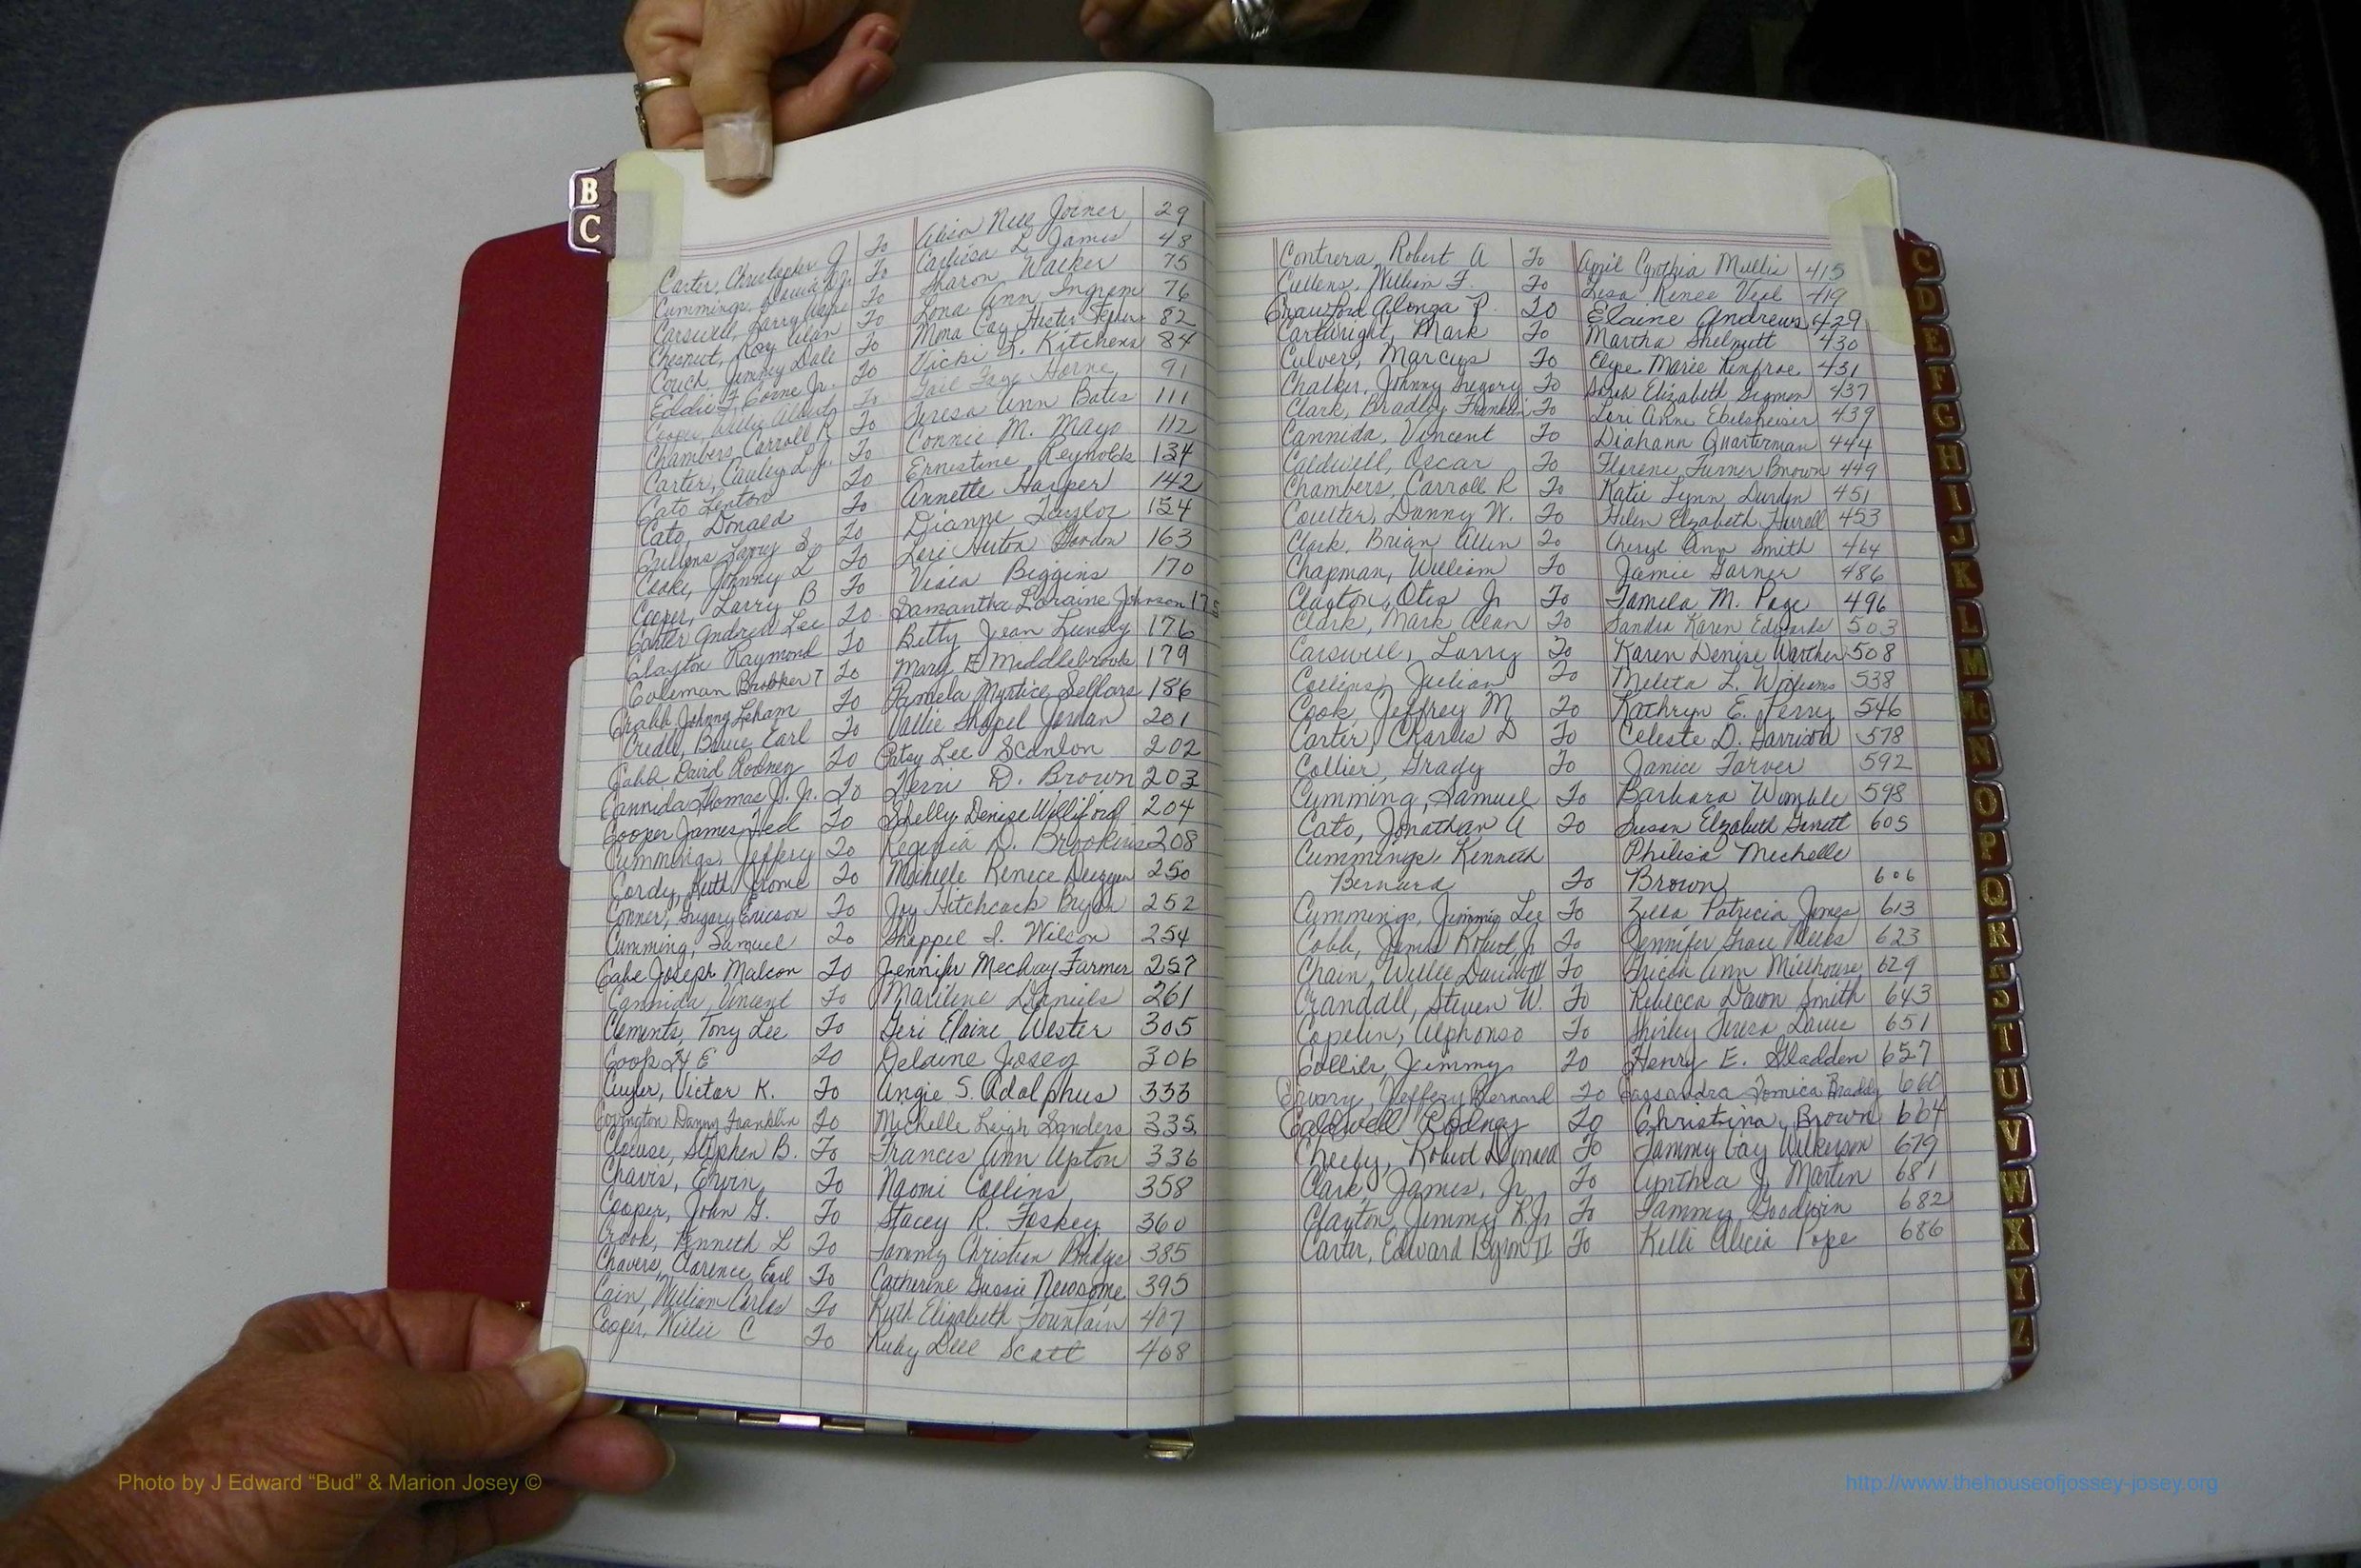 B
C
Carter, Christopher J To Alison Nell Joiner 29
Cummings, To Carlisa L. James 48
Carswell, Larry Wayne To Sharon Walker 75
Chesnut, Roy Alan To Lona Ann Ingram 76
Couch, Jimmy Dale To Mona Gay Hester 82
Eddie F. Corne Jr. To Vicki L. Kitchens 84
Cooper, Willie Albert To Gail Faye Horne 91
Chambers, Carroll R To Teresa Ann Bates 111
Carter, Cauley L. Jr. To Connie M. Mayo 112
Cato Lenton To Ernestine Reynolds 134
Cato, Donald To Annette Harper 142
Larry S. To Dianne Taylor 154
Cooke, Johnny L To Geri Gordon 163
Cooper, Larry B To Biggins 170
Carter Andrew Lee To Samantha Loraine Johnson 175
Clayton Raymond To Betty Jean Lundy 176
Coleman T To Mary E Middlebrooks 179
Crabb Johnny Leham To Pamela Myrtice Sellars 186
Credle, Bruce Earl To Vallie Shapel Jordan 201
David Rodney To Patsy Lee Scanlon 202
Cannida Thomas J. Jr. To Terri D. Brown 203
Cooper James Ted To Shelly Denise Williford 204
Cummings, Jeffery To Reginia D. Brookins 208
Cordy, Keith Jerome To Michele Renece 250
Conner, Gregory Ericson To Joy Hitchcock Bryan 252
Cumming, Samuel To Shappel S. Wilson 254
Cabe Joseph Malcon To Jennifer Mechay Farmer 257
Cannida, Vincent To Marilene Daniels 261
Clements, Tony Lee To Geri Elaine Wester 305
Cook E To Delaine Josey 306
Cuyer, Victor K. To Angie S. Adolphus 333
Covington Danny Franklin To Michelle Leigh Sanders 335
Clouse, Stephen B. To Frances Ann Upton 336
Chavis, Ervin To Naomi Collins 358
Cooper, John G. To Stacey R. Foskey 360
Crook, Kenneth L To Tammy Christien Bridges 385
Chavers, Clarence Earl To Catherine Gussie Newsome 395
Cain, William Carlos To Ruth Elizabeth Fountain 407
Cooper, Willie C To Ruby Dell Scott 408
Contrera, Robert A To April Cynthia Mullis 415
Cullens, William F. To Lisa Renee Veal 419
Crawford Alonza P. To Elaine Andrews 429
Cartwright, Mark To Martha Shelnutt 430
Culver, Marcus To Elyse Marie Renfroe 431
Chalker, Johnny Gregory To Sarah Elizabeth Sigmon 437
Clark, Bradley Franklin To Lori Anne Ebelsheiser 439
Cannida, Vincent To Diahann Quarterman 444
Caldwell, Oscar To Florene Turner Brown 449
Chambers, Carroll R To Katie Lynn Durden 451
Coulter, Danny W. To Helen Elzabeth Harrell 453
Clark, Brian Allen To Cheryl Ann Smith 464
Chapman, William To Jamie Garner 486
Clayton, Otis Jr To Tamela M. Page 496
Clark, Mark Alan To Sandra Karen Edwards 503
Carswell, Larry To Karen Denise Warthen 508
Collins, Julian To Meleta L. Williams 538
Cook, Jeffrey M To Kathryn E. Perry 546
Carter, Charles D To Celeste D. Garrison 578
Collier, Grady To Janice Tarver 592
Cumming, Samuel To Barbara Wimble 598
Cato, Jonathan A To Susan Elzabeth Garrett 605
Cummings, Kenneth Philisa Mechelle
Bernard To Brown 606
Cummings, Jimmy Lee To Zella Patricia Jones 613
Cobb, James Robert, Jr To Jennifer Grace Meeks 623
Chain, Willie David III To Ericka Ann Millhouse 629
Crandall, Steven W. To Rebecca Dawn Smith 643
Copelin, Alphonso To Shirley Teresa Davis 651
Collier, Jimmy To Henry E. Gladden 657
Jeffery Bernard To Cassandra Tomica Braddy 660
Caldwell Rodney To Christina Brown 664
Cheely, Robert Donald To Tammy Gay Wilkerson 679
Clark, James, Jr To Cynthia J. Martin 681
Clayton, Jimmy R. Jr To Tammy Goodwin 682
Carter, Edward Byron II To Kelli Alicia Pope 686
C
D
E
F
G
H
I
J
K
L
M
Mc
N
O
P
Q
R
S
T
U
V
W
X
Y
Z
Photo by J Edward “Bud” & Marion Josey ©
http://www.thehouseofjossey-josey.org